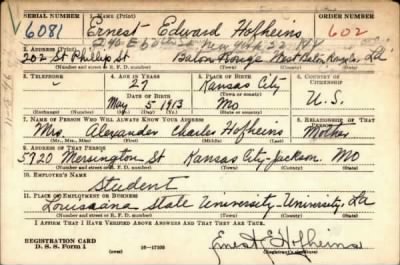 SERIAL NUMBER 1. NAME (Print) ORDER NUMBER
6081 Ernest Edward Hofheins 602
2. ADDRESS (Print)
202 St Phillip St Baton Rouge West Baton Rouge La
(Number and street or R. F. D. number) (Town) (County) (State)
3. TELEPHONE 4. AGE IN YEARS 5. PLACE OF BIRTH 6. COUNTRY OF CITIZENSHIP
27 Kansas City
DATE OF BIRTH (Town or county)
May 5 1913 Mo U.S.
(Exchange) (Number) (Mo.) (Day) (Yr.) (State or country)
7. NAME OF PERSON WHO WILL ALWAYS KNOW YOUR ADDRESS 8. RELATIONSHIP OF THAT PERSON
Mrs. Alexander Charles Hofheins Mother
(Mr., Mrs., Miss) (First) (Middle) (Last)
9. ADDRESS OF THAT PERSON
5720 Mersington St Kansas City-Jackson. Mo
(Number and street or R. F. D. number) (Town) (County) (State)
10. EMPLOYER'S NAME
Student
11. PLACE OF EMPLOYMENT OR BUSINESS
Louisiana State University-University, La
(Number and street or R. F. D. number) (Town) (County) (State)
I AFFIRM THAT I HAVE VERIFIED ABOVE ANSWERS AND THAT THEY ARE TRUE.
REGISTRATION CARD
D. S. S. Form 1 (over) 16-17105 Ernest E Hofheins
(Registrant's signature)